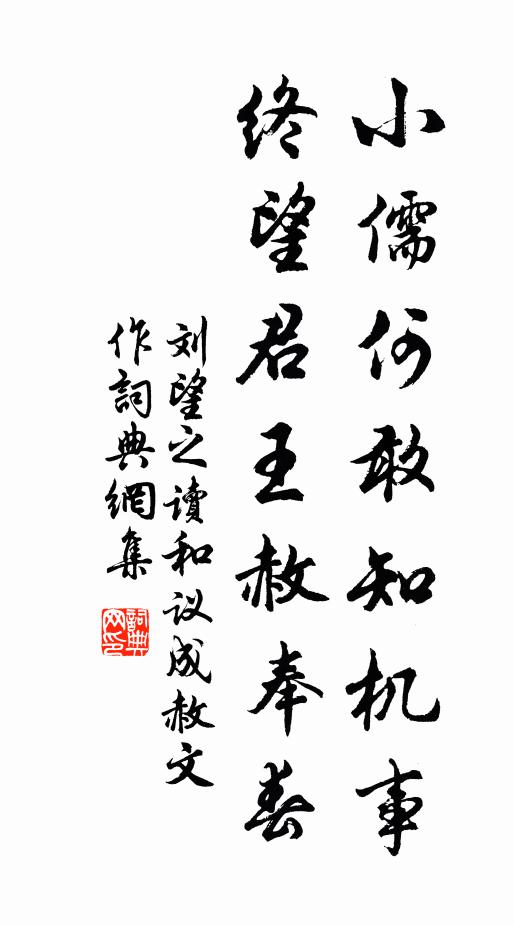 小儒何敢知机事
终望君王赦奉春
刘望之读和议成赦文
作詞典網集
詞典
网印